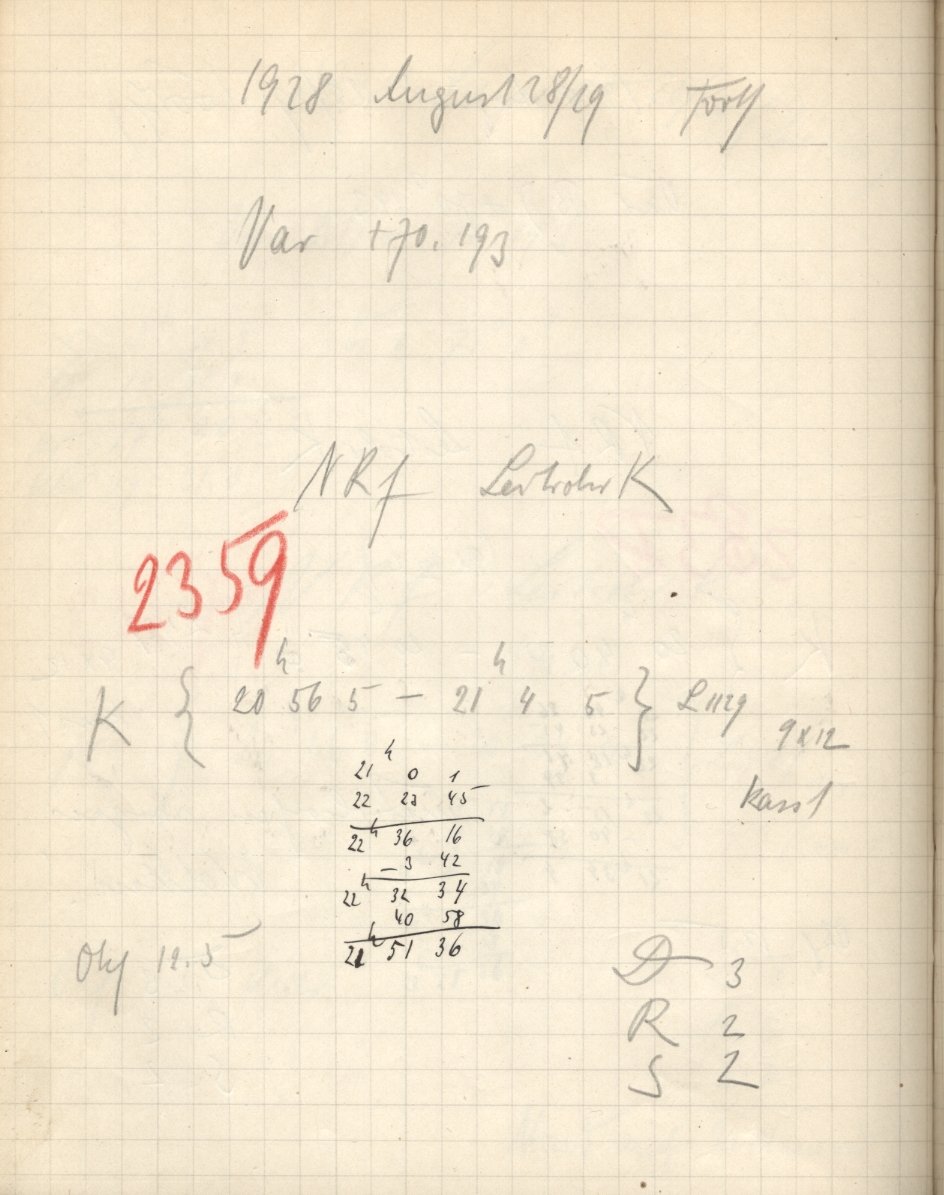 1928 August 28/29 Forts
Var +70.193
NRf Leitrohr K
2359
K { 20h 56 5 — 21h 4 5 } L1129
9x12
Kass
21h 0 1
22 23 45
22h 36 16
— 3 42
22h 32 34
40 58
21h 51 36
Obj 12.5
D 3
R 2
S 2